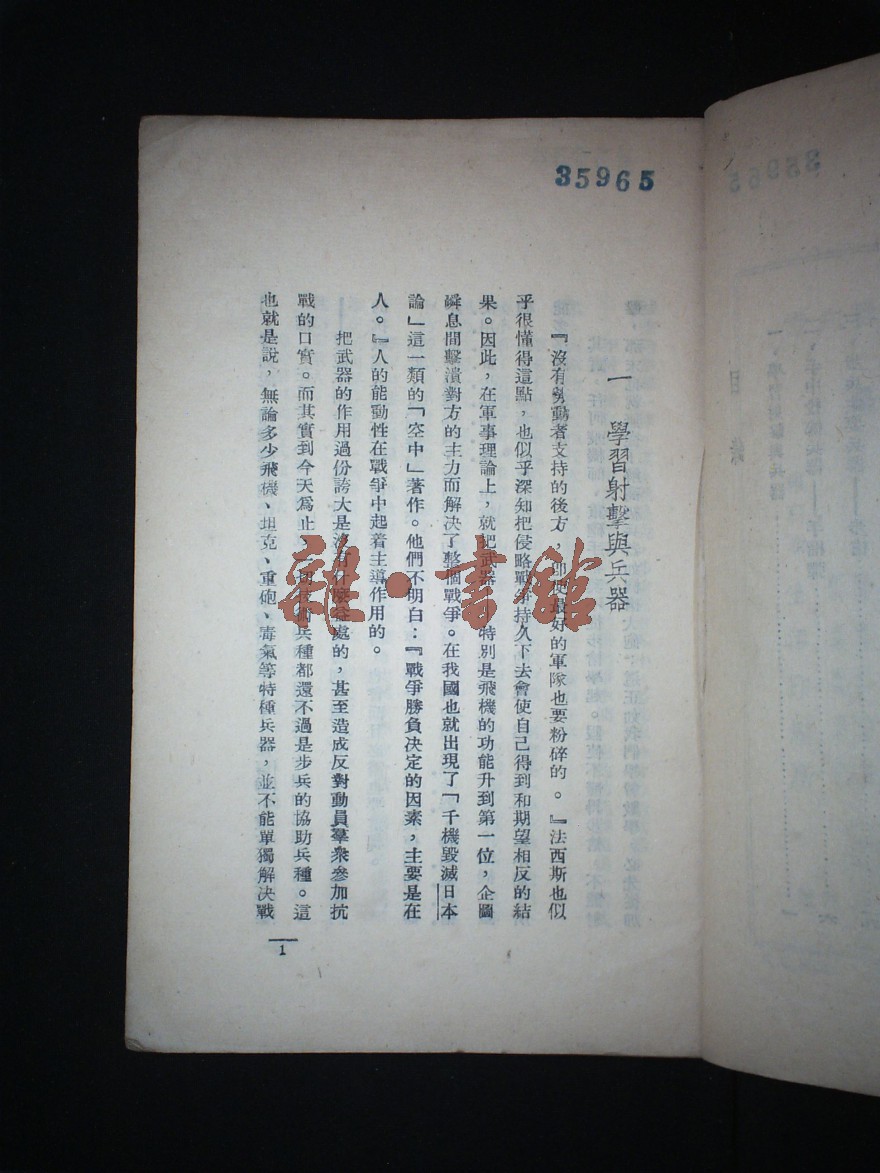 35965
一 學習射擊與兵器
『沒有勞動者支持的後方，即使最好的軍隊也要粉碎的。』法西斯也似
乎很懂得這點，也似乎深知把侵略戰爭持久下去會使自己得到和期望相反的結
果。因此，在軍事理論上，就把武器，特別是飛機的功能升到第一位，企圖
瞬息間擊潰對方的主力而解決了整個戰爭。在我國也就出現了「千機毀滅日本
論」這一類的「空中」著作。他們不明白：『戰爭勝負決定的因素，主要是在
人。』『人的能動性在戰爭中起着主導作用的。
把武器的作用過份誇大是沒有什麼益處的，甚至造成反對動員羣衆參加抗
戰的口實。而其實到今天爲止，一切技術兵種都還不過是步兵的協助兵種。這
也就是說，無論多少飛機、坦克、重砲、毒氣等特種兵器，並不能單獨解決戰
1
雜·書館
目 錄